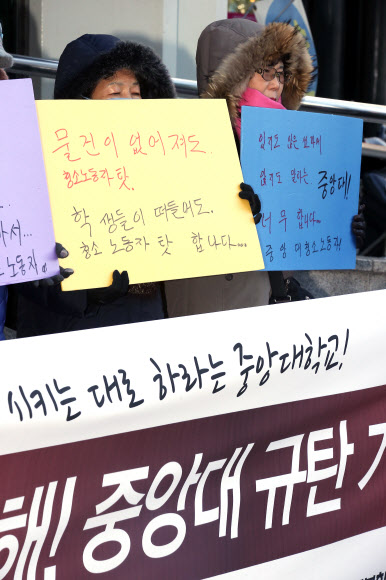 물건이 없어져도
청소노동자 탓.
학생들이 떠들어도.
청소 노동자 탓 합니다...
앉지도 않은 쇼파에
앉지도 말라는 중앙대!
너무 합니다..
중앙대청소노동자
노동자
시키는 대로 하라는 중앙대학교!
해! 중앙대 규탄 기